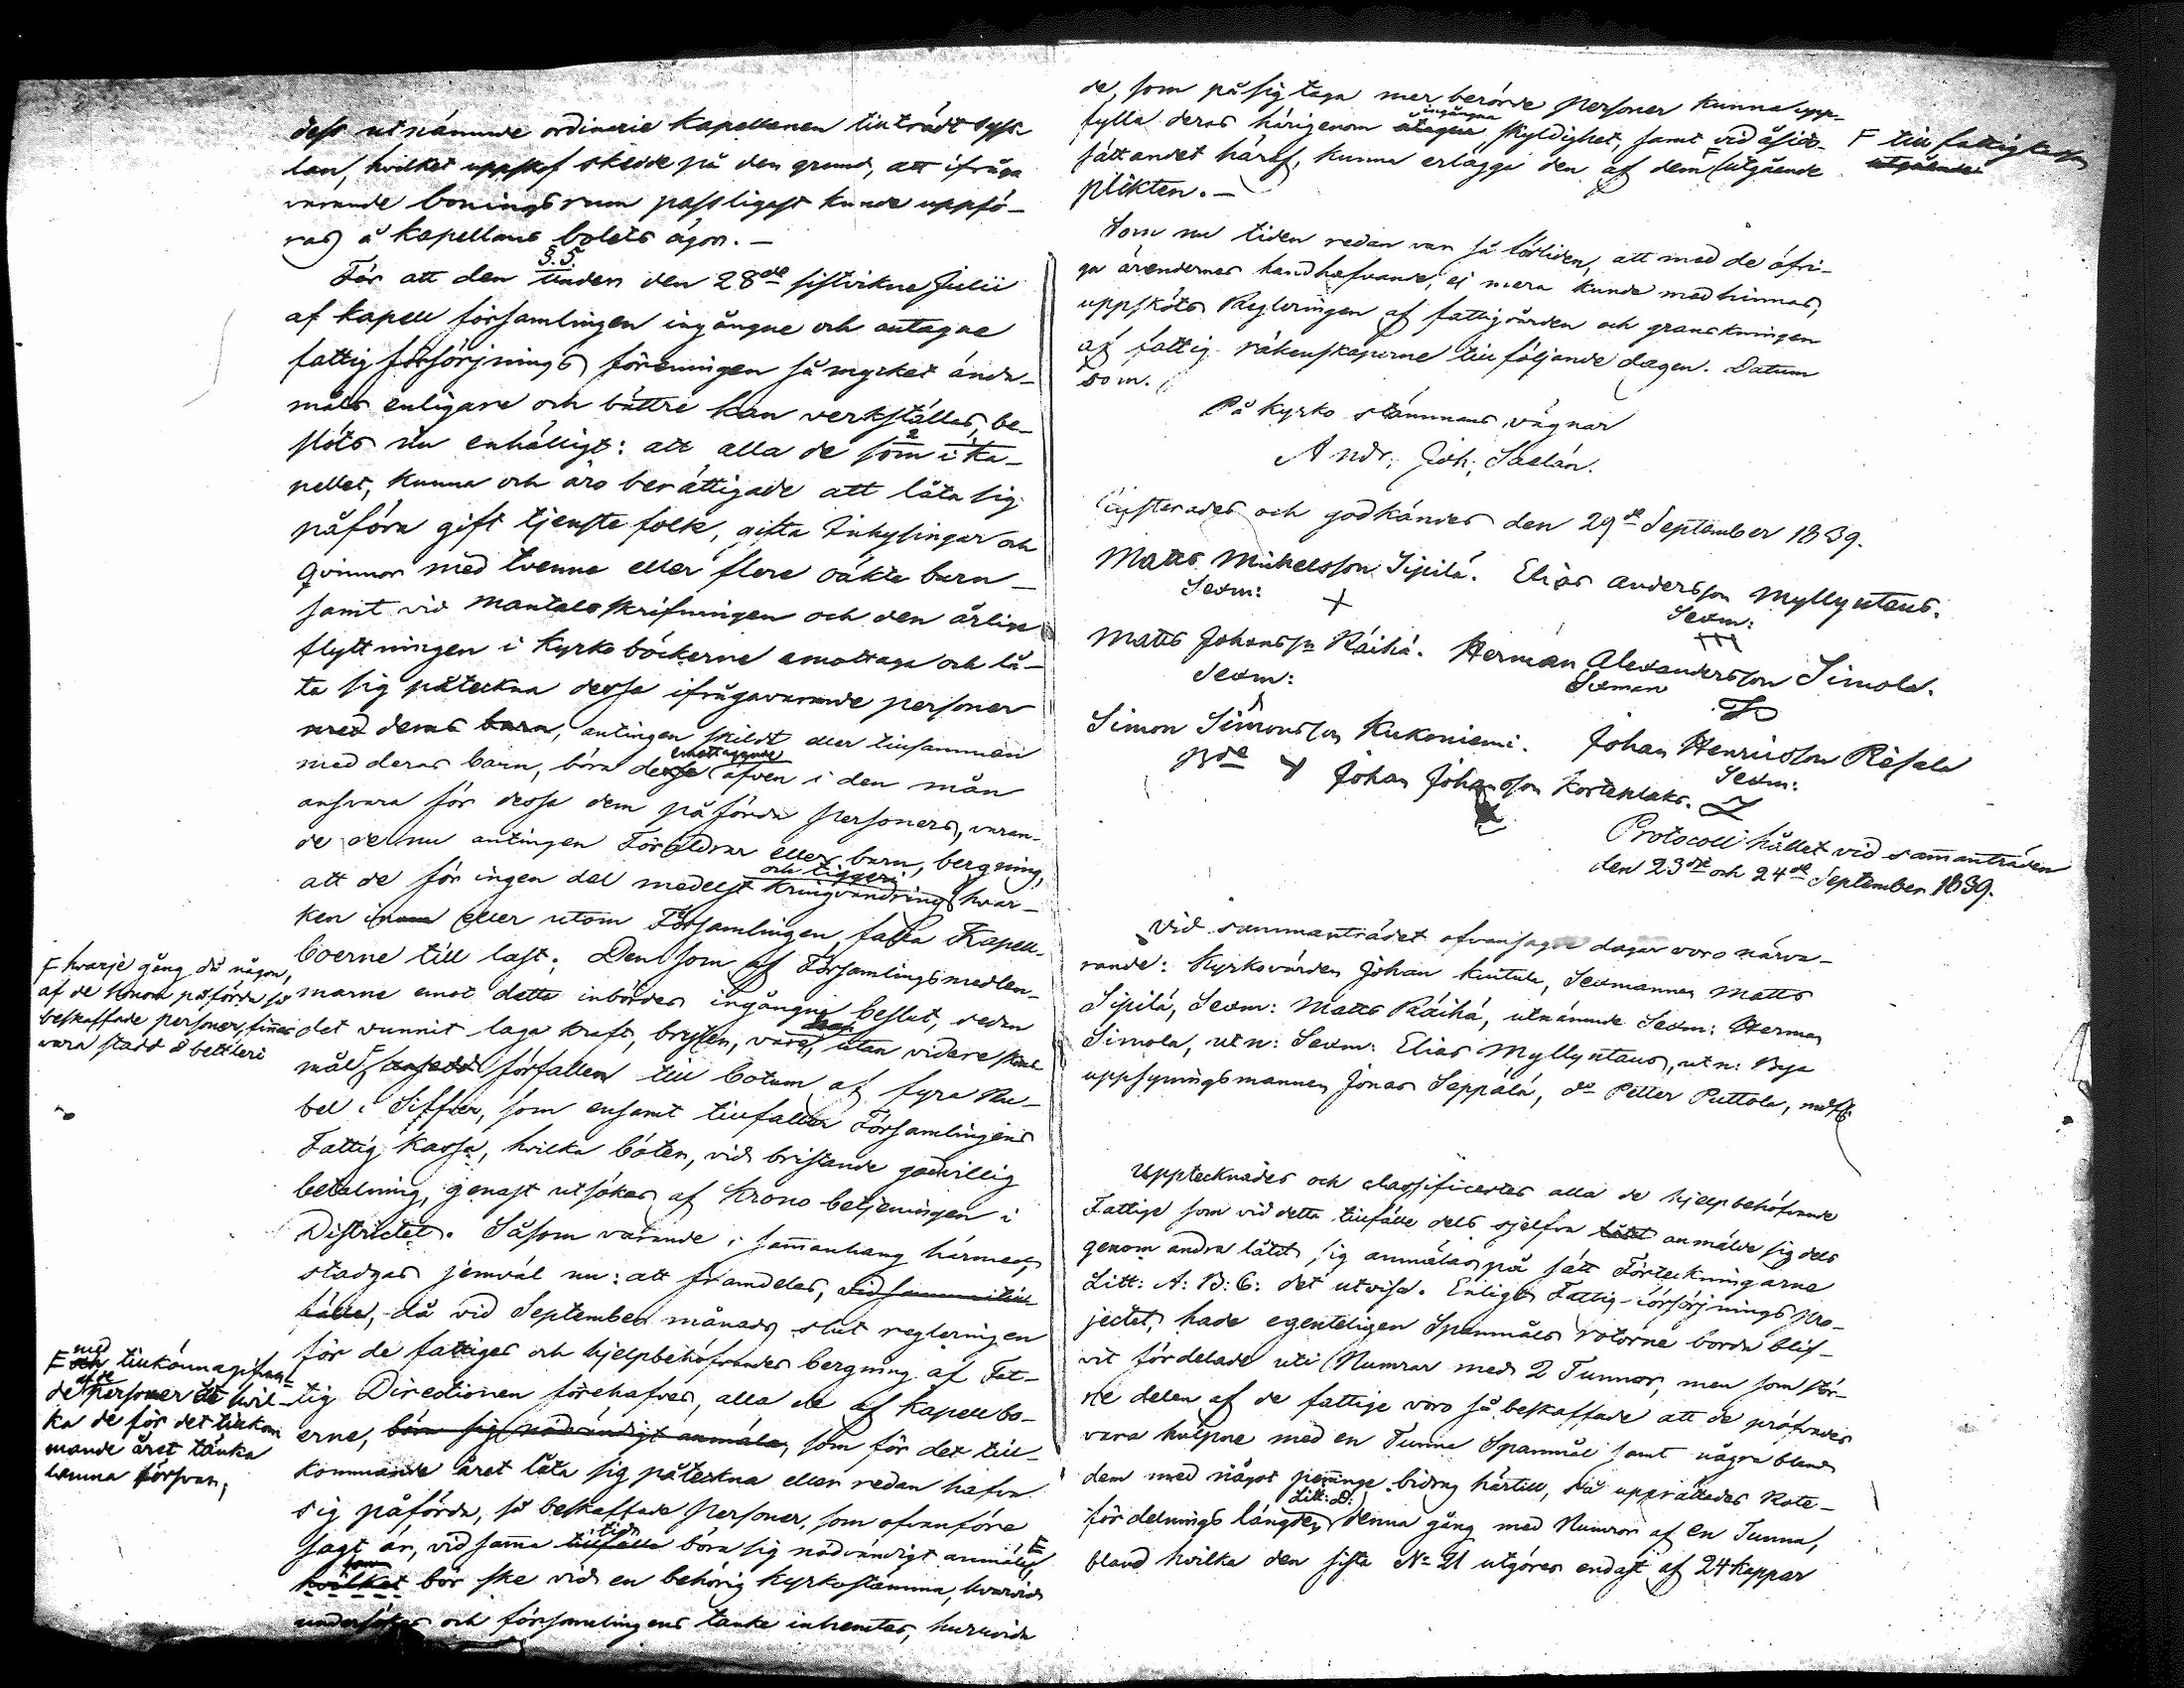 dess utnämnde ordinarie Kapellanen tillträdt syss
lan, hvilket uppskof skedde på den grund, att ifråga
varande boningsrum passligast kunde uppfö-
ras å Kapellans bolets ägor. –
§. 5.
För att den under den 28de sistvikne Julii
af Kapell församlingen ingångne och antagne
fattig försörjnings föreningen så mycket ända-
måls enligare och bättre kan verkställas, be-
slöts nu enhälligt: att alla de som i Ka-
pellet, kunna och äro berättigade att låta sig
påföra gift tjenste folk, gifta Inhysingar och
Qvinnor med tvenne eller flere oäkta barn –
samt vid Mantals skrifningen och den årliga
flyttningen i Kyrko böckerne emottaga och lå-
ta sig påteckna dessa ifrågavarande personer
med deras barn, antingen skildt eller tillsamman
emottagande
med deras barn, böra dessa äfven i den mån
ansvara för dessa dem påförda personers, varan-
de de nu antingen Föräldrar eller barn, bergning,
och tiggeri
att de för ingen del medelst kringvandring hvar-
ken inom eller utom Församlingen, falla Kapell-
boerne till last. Den som af Församlingsmedlem-
marne emot detta inbördes ingångne beslut, sedan
det vunnit laga kraft, brister, vare, utan vidare skone
mål, förfallen till botum af fyra Ru-
bel i Silfver, som ensamt tillfaller Församlingens
Fattig Kassa, hvilka böter, vid bristande godvillig
betalning, genast utsökas af Krono betjeningen i
Districtet. Såsom varande i sammanhang härmed,
stadgas jemväl nu: att framdeles, vid samma till-
fälle, då vid September månads slut regleringen
för de fattiges och hjelpbehöfvandes bergning af Fat-
tig Directionen förehafves, alla de af Kapell bo-
erne, böra sig nödvändigt anmäla, som för det till-
kommande året låta sig påteckna eller redan hafva
sig påförda, så beskaffade Personer, som ofvanföre
tid
sagt är, vid samma tillfälle böra sig nödvändigt anmäla, F
som
hvilket bör ske vid en behörig Kyrkostämma, hvarvid
undersökes och församlingens tanke inhemtas, huruvida
F hvarje gång då någon,
af de honom påförda så
beskaffade personer, finnes
vara stadd å bettleri
med
F och tillkännagifvan-
de af de personer till hvil-
ka de för det tillkom
mande året tänka
lemna försvar,
de, som på sig taga mer berörde personer kunna upp-
ingångna
fylla deras härigenom åtagna skyldighet, samt vid åsido-
sättandet häraf, kunna erlägga den af dem F utgående
plikten. –
F till fattigkassan
utgående
Som nu tiden redan var så förliden, att med de öfri-
ga ärendernes handhafvande, ej mera kunde medhinnas,
uppsköts Regleringen af fattigvården och granskningen
af fattig räkenskaperne till följande dagen. Datum
som.
På Kyrko stämmans vägnar
Andr. Joh: Saxlén.
Justerades och godkändes den 29de September 1839.
Matts Michelsson Sipilä. Elias Andersson Myllyntaus.
Sexm: Sexm:
Matts Johansson Räihä. Herman Alexandersson Simola.
Sexm: Sexman
Simon Simonsson Kukoniemi. Johan Henricsson Risala
Sexm:
Johan Johansson Kortenlaks.
Protocoll hållet vid sammanträden
den 23de och 24de September 1839.
Vid sammanträdet ofvansagde dagar voro närva-
rande: Kyrkovärden Johan Kuitula, Sexmannen Matts
Sipilä, Sexm: Matts Räihä, utnämnde Sexm: Herman
Simola, utn: Sexm: Elias Myllyntaus, utn: Bya
uppsyningsmannen Jonas Seppälä, do Petter Puttola,
Upptecknades och classificerades alla de hjelpbehöfvande
Fattige som vid detta tillfälle dels sjelfva låtit anmälde sig dels
genom andra låtit sig anmälas på sätt Förteckningarne
Litt: A: B: C: det utvisa. Enligt Fattig-försörjnings Pro-
jectet, hade egenteligen Spanmåls rotorne bordt blif-
vit fördelade uti Numror med 2 Tunnor, men som stör-
re delen af de fattige voro så beskaffade att de pröfvades
vara hulpne med en Tunna Spanmål samt några bland
dem med något penninge bidrag härtill, då upprättades Rote-
Litt: D:
fördelnings längden denna gång med Numror af en Tunna,
bland hvilka den sista No 21 utgöres endast af 24 kappar